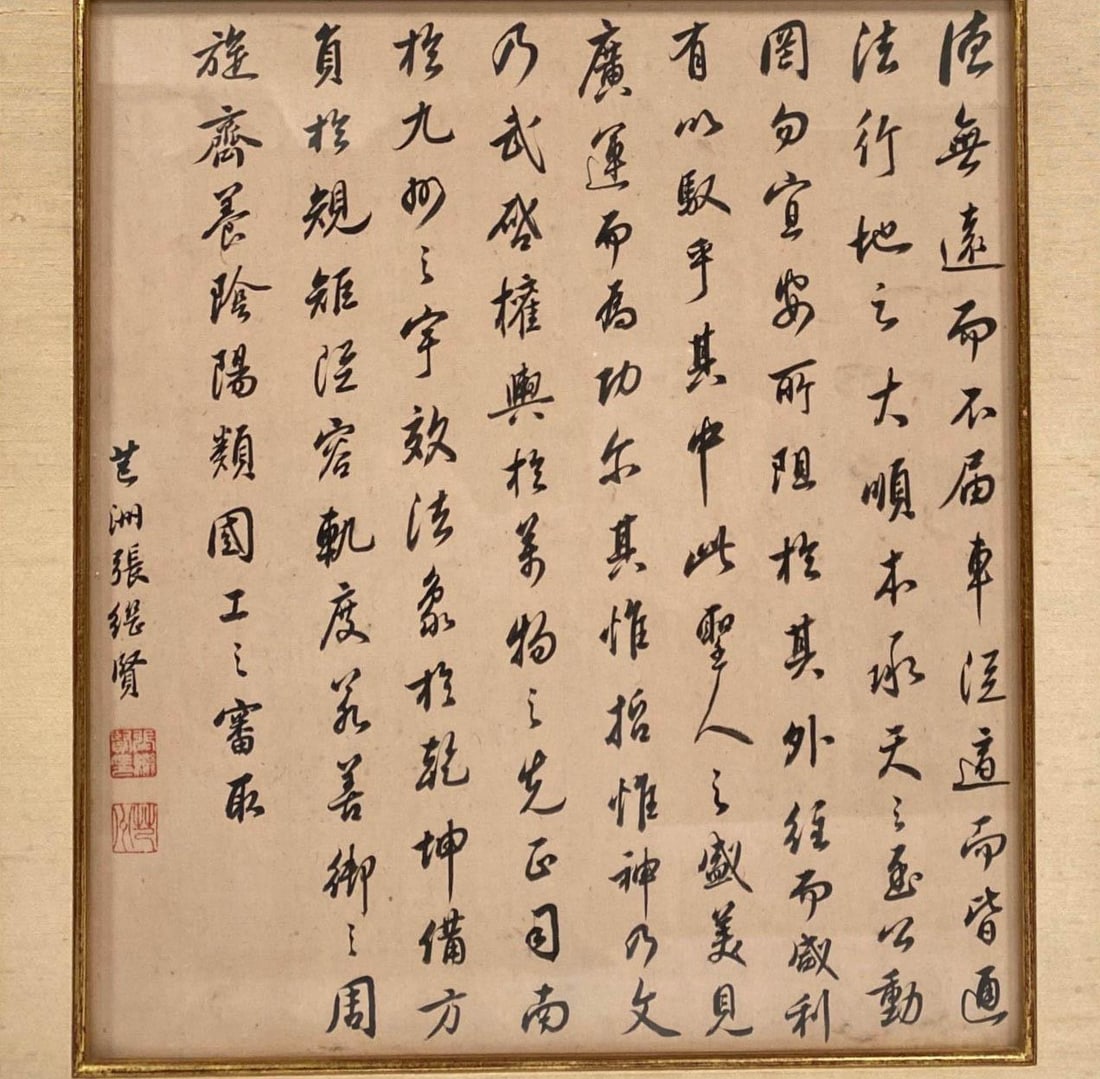 德無遠而不届車從適而皆通
法行地之大順本承天之至公動
罔勿宜安所阻於其外經而咸利
有以馭乎其中此聖人之盛美見
廣運而為功尔其惟哲惟神乃文
乃武啓權輿於萬物之先正司南
於九州之宇效法象於乾坤備方
員於規矩從容軌度若善御之周
旋齊養陰陽類國工之審取
芑洲張繼賢